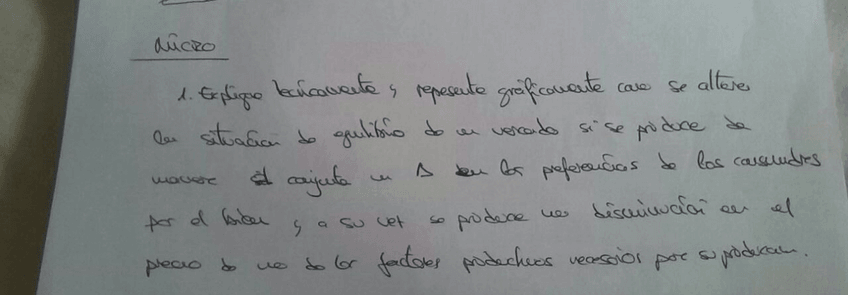 MICRO
1. Explique teóricamente y represente gráficamente como se altera
la situación de equilibrio de un mercado si se produce de
manera conjunta un Δ en las preferencias de los consumidores
por el bien y a su vez se produce una disminución en el
precio de uno de los factores productivos necesarios para su produccion.